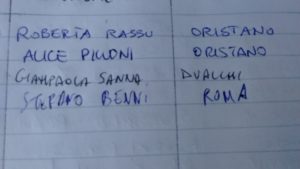 ROBERTA RASSU ORISTANO
ALICE PILLONI ORISTANO
GIANPAOLA SANNA DUALCHI
STEFANO BENNI ROMA